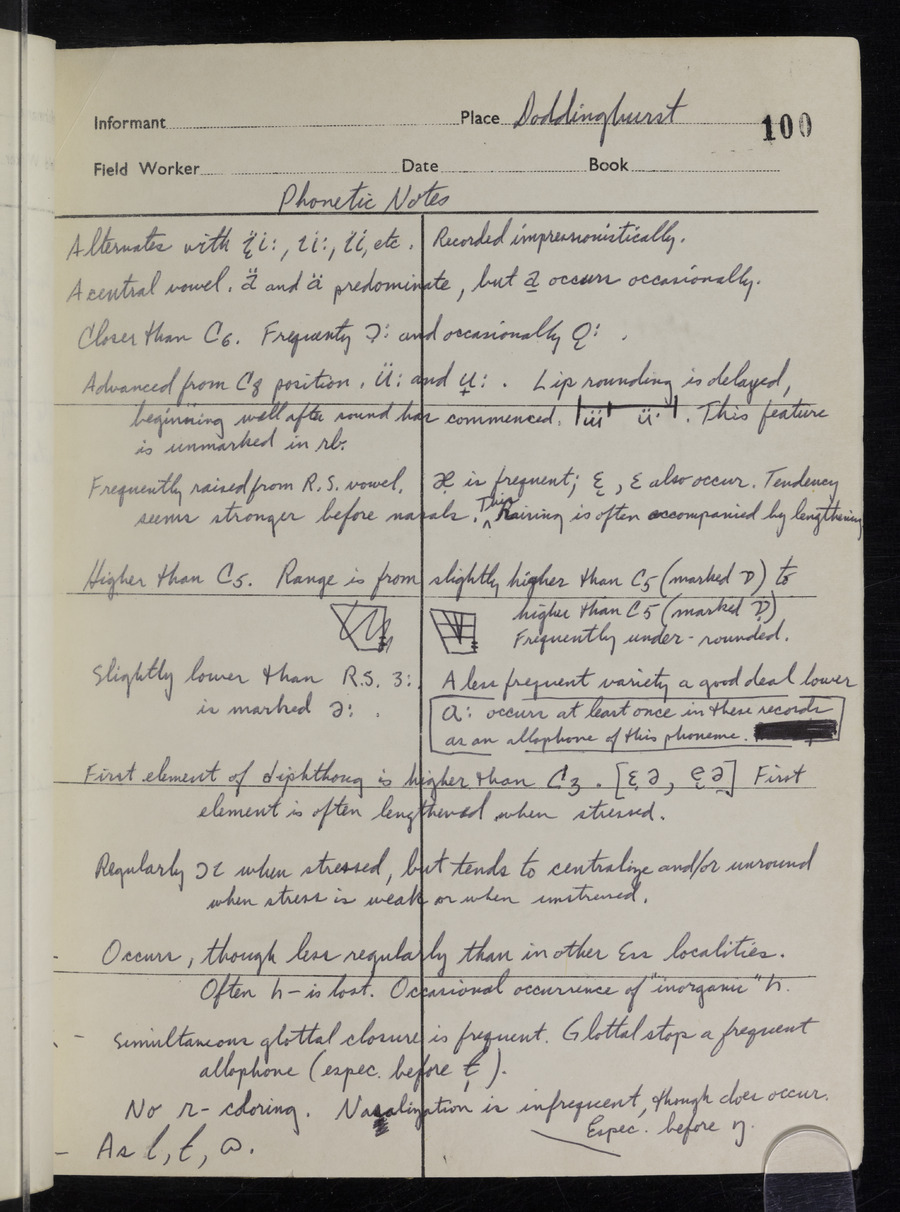 Informant Place Doddinghurst 100
Field Worker Date Book
Phonetic Notes
Alternates with ɛ̈i:, ɩi:, ɩ̈i, etc. Recorded impressionistically.
A central vowel. ä and ä predominate, but a̱ occurs occasionally.
Closer than C6. Frequently ɔ: and occasionally
Advanced from C8 position. ü: and u̟: . Lip rounding is delayed,
beginning well after sound has commenced. |ïü ü| . This feature
is unmarked in rb.
Frequently raised from R.S. vowel. æ is frequent; ɛ̞, ɛ also occur. Tendency
seems stronger before nasals. This Raising is often accompanied by lengthening
Higher than C5. Range is from slightly higher than C5 (marked ɒ) to
higher than C5 (marked ɒ̣)
Frequently under-rounded.
Slightly lower than R.S. ɜ:. A less frequent variety a good deal lower
is marked ə: .
ɑ: occurs at least once in these records
as an allophone of this phoneme.
First element of diphthong is higher than C3. [ɛ̣ə, e̞ə] First
element is often lengthened when stressed.
Regularly ɔɩ when stressed, but tends to centralize and/or unround
when stress is weak or when unstressed.
- Occurs, though less regularly than in other Ess localities.
Often h- is lost. Occasional occurrence of "inorganic" h.
- Simultaneous glottal closure is frequent. Glottal stop a frequent
allophone (espec. before t̩).
No r-coloring. Nasalization is infrequent, though does occur.
Espec. before ŋ.
- As l, ɫ, ɷ.